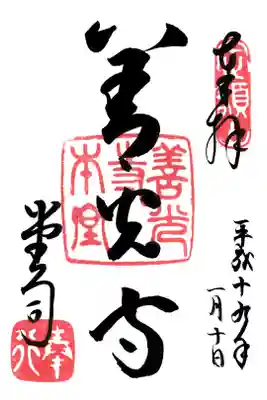 奉拝
平成十九年
一月十日
善光寺
善光
寺
本堂
堂司